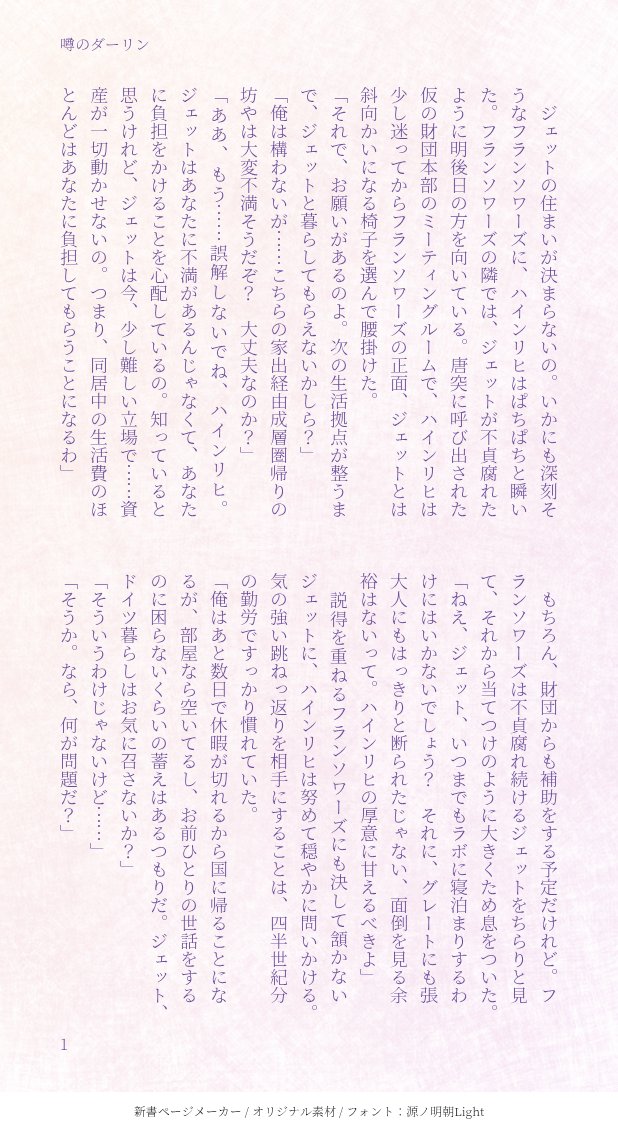 噂のダーリン
　ジェットの住まいが決まらないの。いかにも深刻そ
うなフランソワーズに、ハインリヒはぱちぱちと瞬い
た。フランソワーズの隣では、ジェットが不貞腐れた
ように明後日の方を向いている。唐突に呼び出された
仮の財団本部のミーティングルームで、ハインリヒは
少し迷ってからフランソワーズの正面、ジェットとは
斜向かいになる椅子を選んで腰掛けた。
「それで、お願いがあるのよ。次の生活拠点が整うま
で、ジェットと暮らしてもらえないかしら？」
「俺は構わないが……こちらの家出経由成層圏帰りの
坊やは大変不満そうだぞ？　大丈夫なのか？」
「ああ、もう……誤解しないでね、ハインリヒ。
ジェットはあなたに不満があるんじゃなくて、あなた
に負担をかけることを心配しているの。知っていると
思うけれど、ジェットは今、少し難しい立場で……資
産が一切動かせないの。つまり、同居中の生活費のほ
とんどはあなたに負担してもらうことになるわ」
　もちろん、財団からも補助をする予定だけれど。フ
ランソワーズは不貞腐れ続けるジェットをちらりと見
て、それから当てつけのように大きくため息をついた。
「ねえ、ジェット、いつまでもラボに寝泊まりするわ
けにはいかないでしょう？　それに、グレートにも張
大人にもはっきりと断られたじゃない、面倒を見る余
裕はないって。ハインリヒの厚意に甘えるべきよ」
　説得を重ねるフランソワーズにも決して頷かない
ジェットに、ハインリヒは努めて穏やかに問いかける。
気の強い跳ねっ返りを相手にすることは、四半世紀分
の勤労ですっかり慣れていた。
「俺はあと数日で休暇が切れるから国に帰ることにな
るが、部屋なら空いてるし、お前ひとりの世話をする
のに困らないくらいの蓄えはあるつもりだ。ジェット、
ドイツ暮らしはお気に召さないか？」
「そういうわけじゃないけど……」
「そうか。なら、何が問題だ？」
1
新書ページメーカー / オリジナル素材 / フォント：源ノ明朝Light